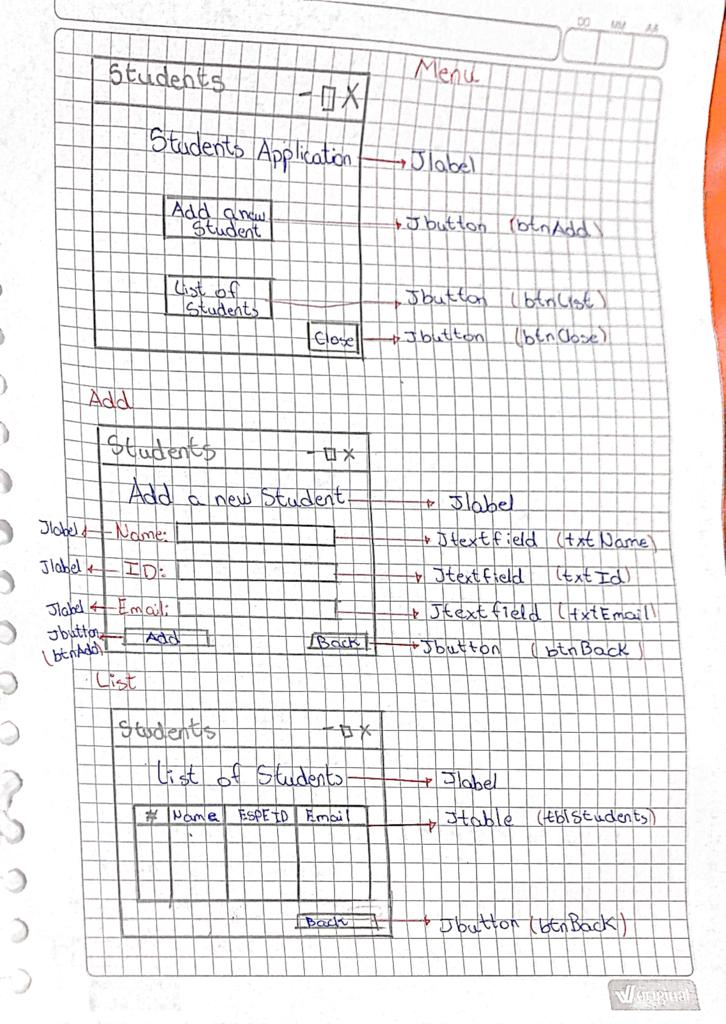 DD MM AA
Menu
Students - □ X
Students Application → Jlabel
Add a new
Student → Jbutton (btnAdd)
List of
Students → Jbutton (btnList)
Close → Jbutton (btnClose)
Add
Students - □ X
Add a new Student → Jlabel
Jlabel ← Name: → Jtextfield (txtName)
Jlabel ← ID: → Jtextfield (txtId)
Jlabel ← Email: → Jtextfield (txtEmail)
Jbutton
(btnAdd) ← Add
Back → Jbutton (btnBack)
List
Students - □ X
List of Students → Jlabel
# Name ESPEID Email → Jtable (tblStudents)
Back → Jbutton (btnBack)
original